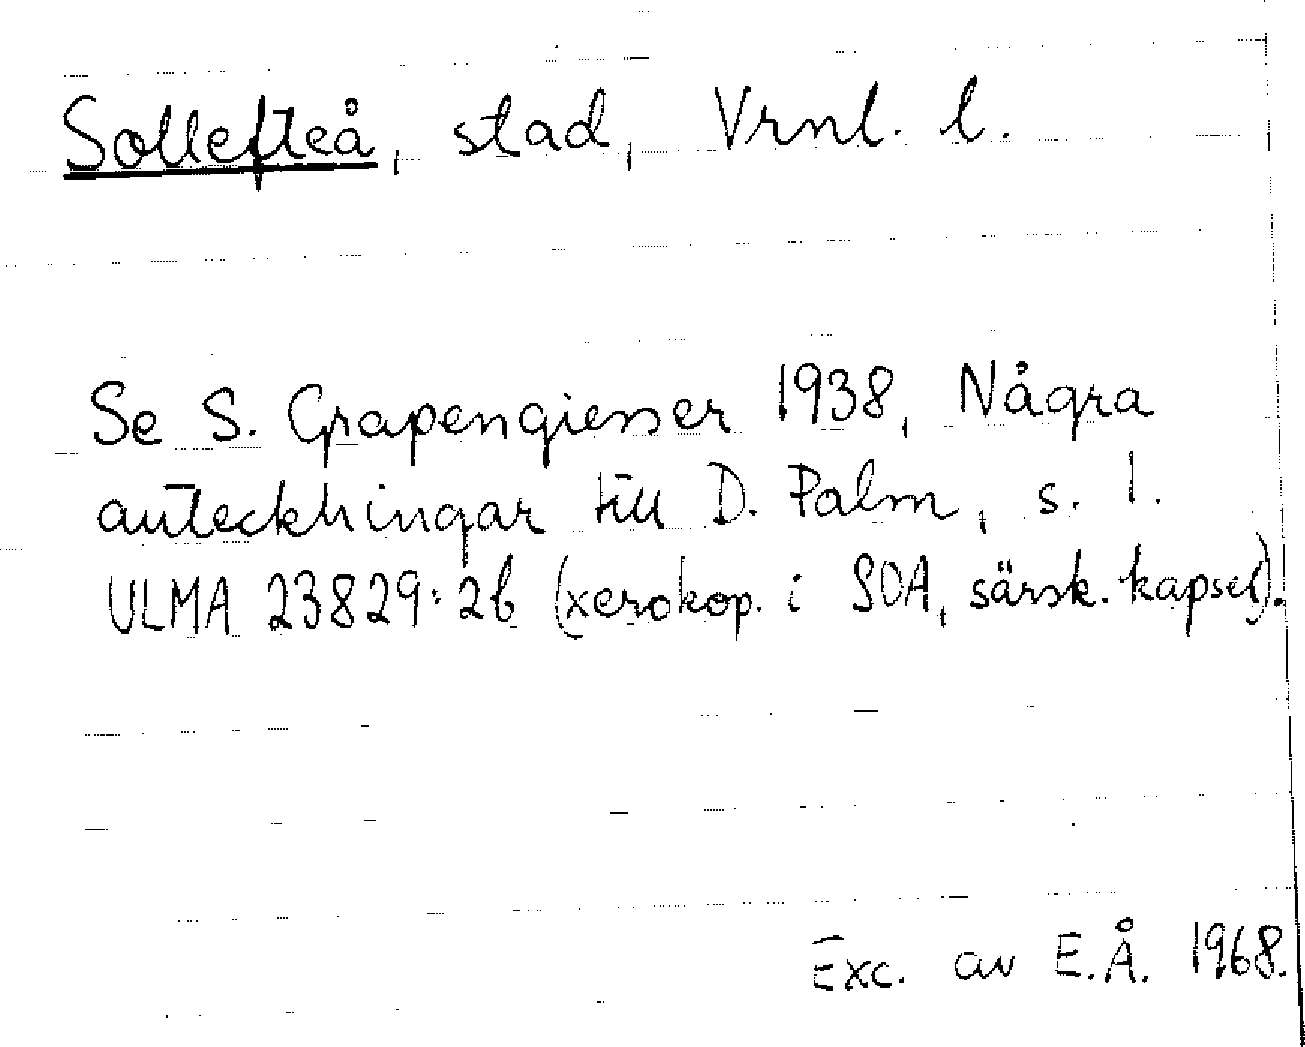 Sollefteå, stad, Vrnl. l.
Se S. Grapengiesser 1938, Några
anteckningar till D. Palm, s. 1.
ULMA 23829:2b (xerokop. i SOA, särsk. kapsel).
Exc. av E.Å. 1968.